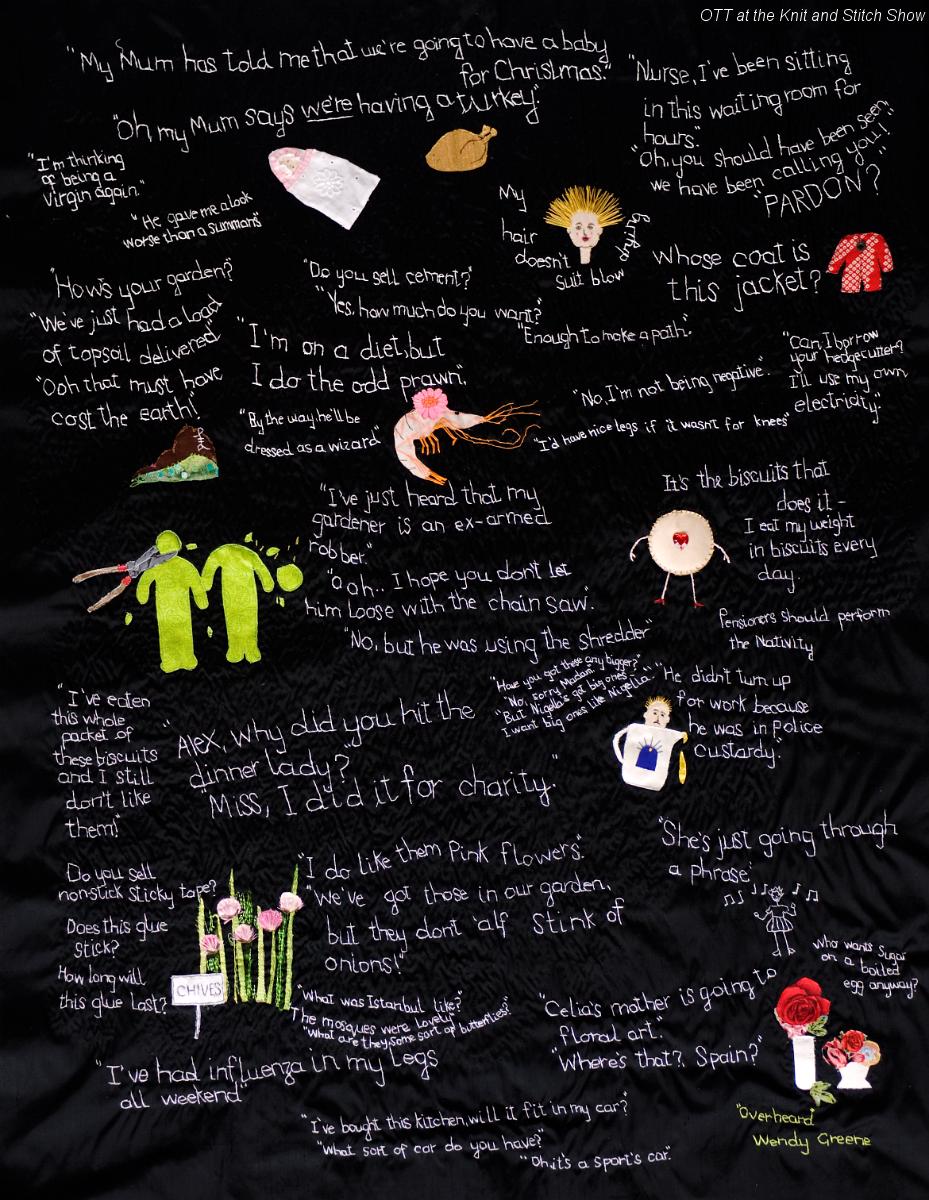 OTT at the Knit and Stitch Show
"My Mum has told me that we're going to have a baby
for Christmas."
"Oh, my Mum says we're having a turkey"
"Nurse, I've been sitting
in this waiting room for
hours."
"Oh, you should have been seen,
we have been calling you!"
"PARDON"?
"I'm thinking
of being a
virgin again."
"He gave me a look
worse than a summans"
My
hair
doesn't
suit blow
drying
whose coat is
this jacket?
"How's your garden?"
"We've just had a load
of topsoil delivered"
"Ooh that must have
cost the earth!"
"Do you sell cement?"
"Yes, how much do you want?"
"Enough to make a path."
"I'm on a diet, but
I do the odd prawn".
"Can I borrow
your hedgecutter?
I'll use my own
electricity."
"No, I'm not being negative".
"I'd have nice legs if it wasn't for knees"
"By the way, he'll be
dressed as a wizard"
"I've just heard that my
gardener is an ex-armed
robber."
"ooh.. I hope you don't let
him loose with the chain saw".
"No, but he was using the shredder"
It's the biscuits that
does it -
I eat my weight
in biscuits every
day.
Pensioners should perform
the Nativity
"Have you got these any bigger?"
"No, sorry Madam"
"But Nigella's got big ones -
I want big ones like Nigella"
"He didn't turn up
for work because
he was in police
custardy."
"I've eaten
this whole
packet of
these biscuits
and I still
don't like
them!"
"Alex, why did you hit the
dinner lady?"
"Miss, I did it for charity."
"She's just going through
a phrase"
Do you sell
non-stick sticky tape?
Does this glue
stick?
How long will
this glue last?
CHIVES
"I do like them Pink flowers".
"We've got those in our garden,
but they don't 'alf stink of
onions!"
who wants sugar
on a boiled
egg anyway?
"What was Istanbul like?"
"The mosques were lovely"
"What are they, some sort of butterflies?"
"Celia's mother is going to
floral art."
"Where's that?, Spain?"
"I've had influenza in my legs
all weekend"
"I've bought this kitchen, will it fit in my car?"
"What sort of car do you have?"
"Oh, it's a sport's car."
"Overheard"
Wendy Greene